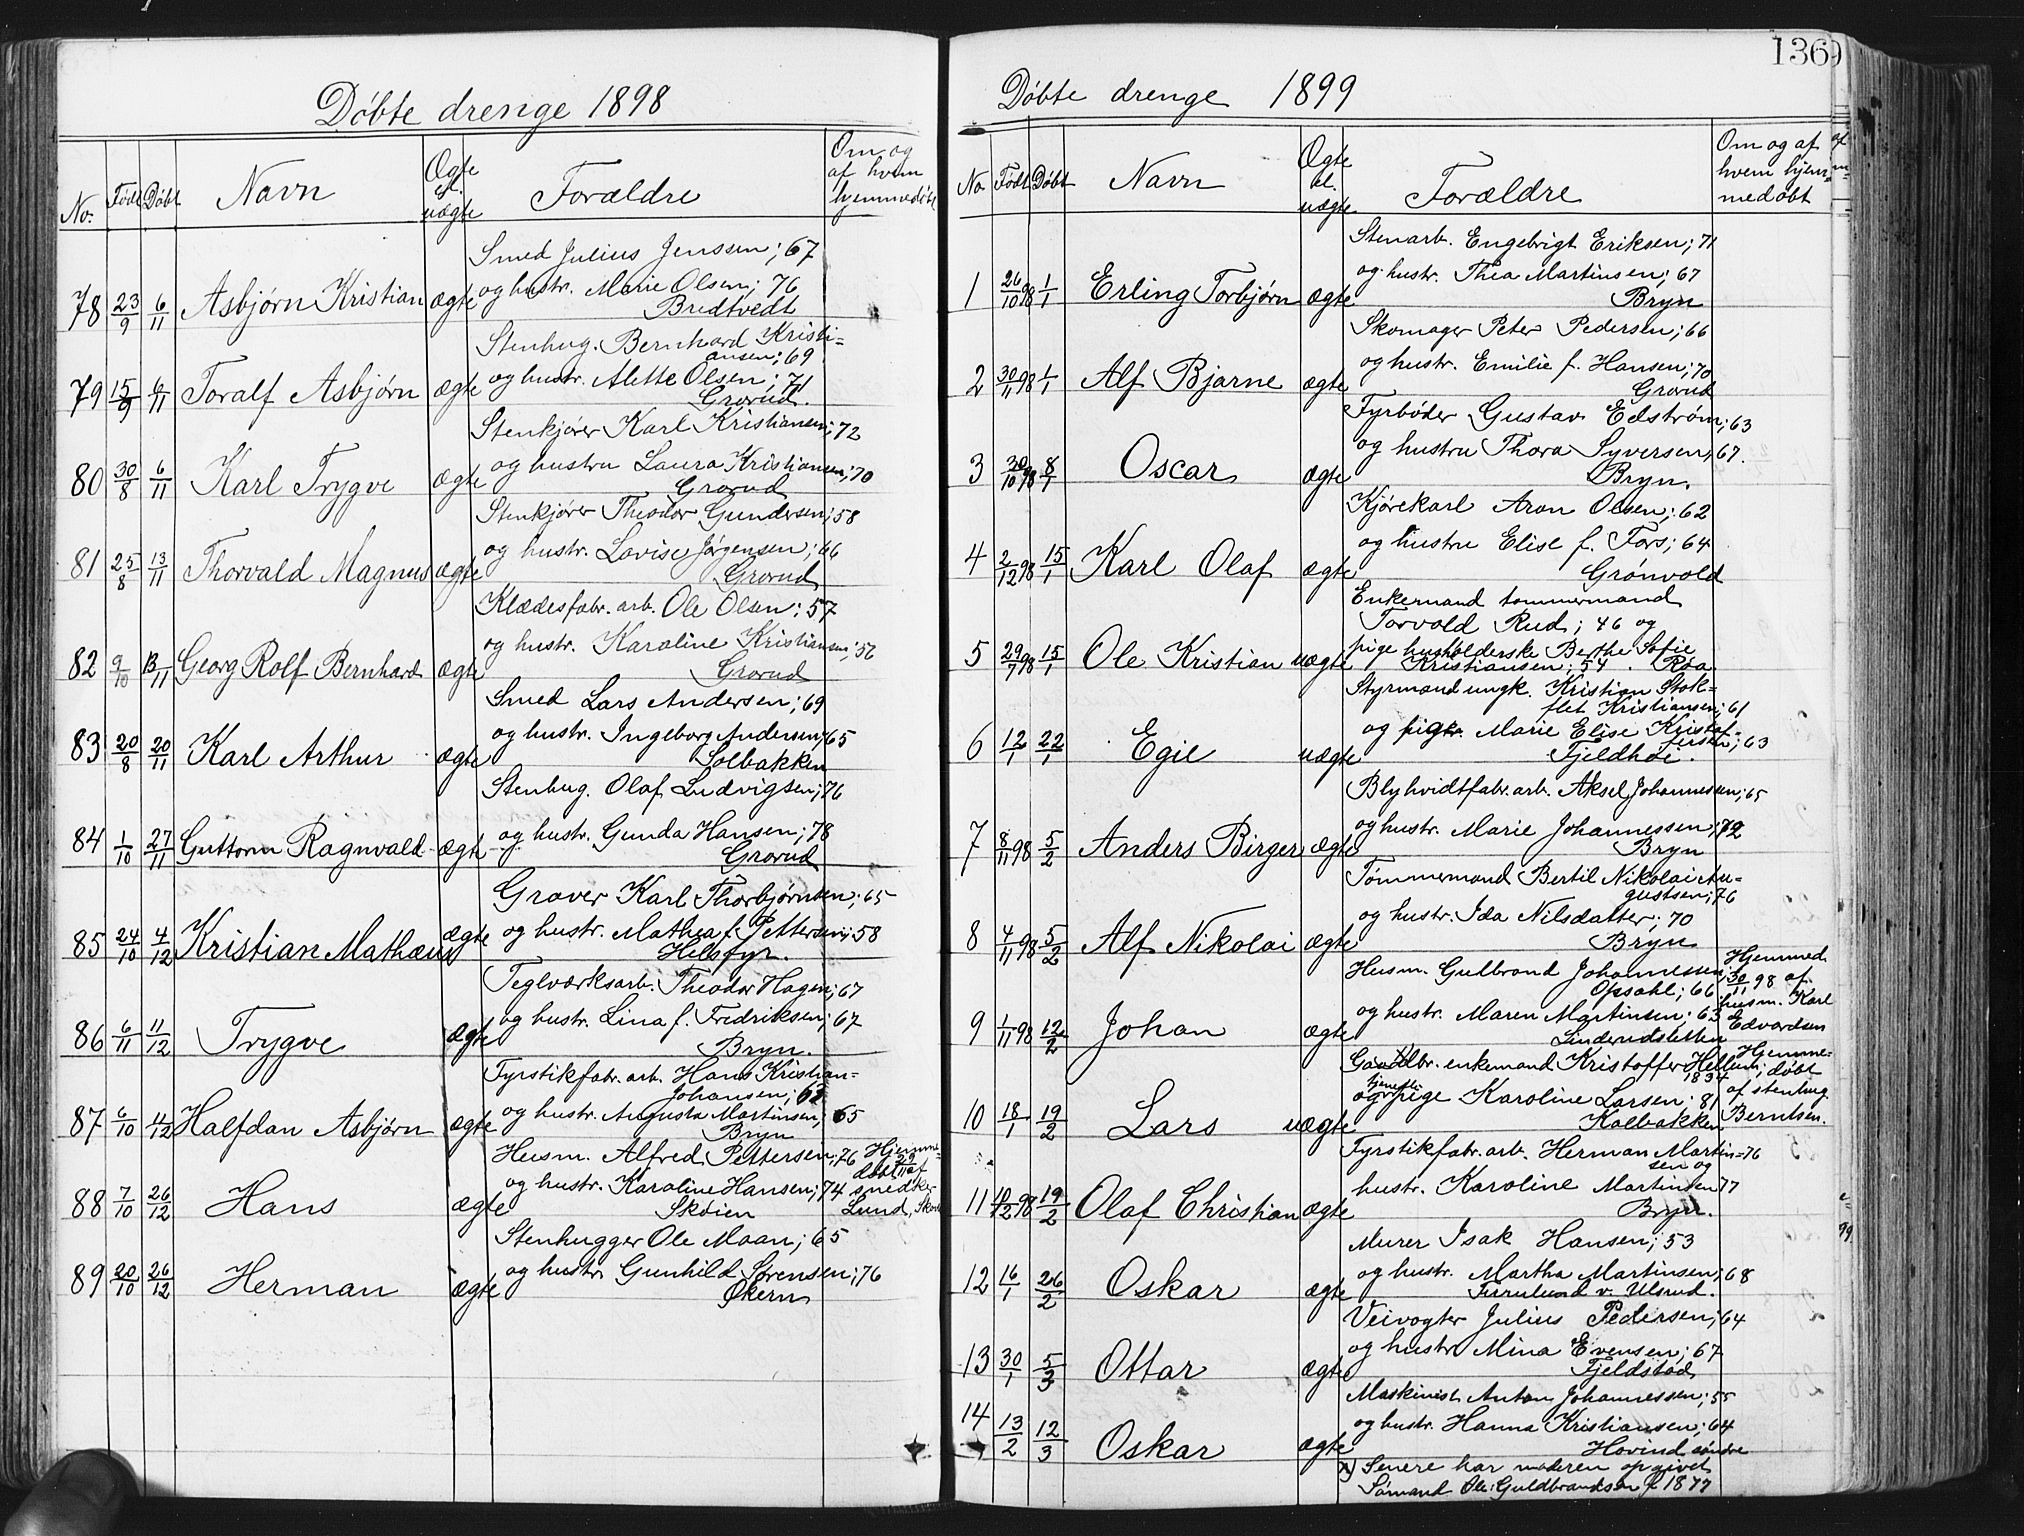 Døbte drenge 1898
No. Født Døbt Navn Ægte el. uægte Forældre Om og af hvem hjemmedøbt
Smed Julius Jenssen; 67
78 23/9 6/11 Asbjørn Kristian ægte og hustr. Marie Olsen; 76
Bredtvedt
Stenhug. Bernhard Kristi=
ansen; 69
79 15/9 6/11 Toralf Asbjørn ægte og hustr. Alette Olsen; 71
Grorud.
Stenkjører Karl Kristiansen; 72
80 30/8 6/11 Karl Trygve ægte og hustru Laura Kristiansen; 70
Grorud
Stenkjører Theodor Gundersen; 58
81 25/8 13/11 Thorvald Magnus ægte og hustr. Lovise Jørgensen; 66
Grorud
Klædesfabr. arb. Ole Olsen; 57
82 9/10 13/11 Georg Rolf Bernhard ægte og hustr. Karoline Kristiansen; 56
Grorud
Smed Lars Andersen; 69
83 20/8 20/11 Karl Arthur ægte og hustr. Ingeborg Andersen; 65
Solbakken
Stenhug. Olaf Ludvigsen; 76
84 1/10 27/11 Guttorm Ragnvald ægte og hustr. Gunda Hansen; 78
Grorud
Graver Karl Thorbjørnsen; 65
85 24/10 4/12 Kristian Mathæus ægte og hustr. Mathea f. Pettersen; 58
Helsfyr.
Teglværksarb. Theodor Hagen; 67
86 6/11 11/12 Trygve ægte og hustr. Lina f. Fredriksen; 67
Bryn.
Fyrstikfabr. arb. Hans Kristian=
Johansen; 63
87 6/10 4/12 Halfdan Asbjørn ægte og hustr. Augusta Martinsen; 65
Bryn
Husm. Alfred Pettersen; 76 Hjemme=
døbt 29/11 af
88 7/10 26/12 Hans ægte og hustr. Karoline Hansen; 74 smedker
Skøien Lund,
Stenhugger Ole Moan; 65
89 20/10 26/12 Herman ægte og hustr. Gunhild Sørensen; 76
Økern
136
Døbte drenge 1899
No Født Døbt Navn Ægte el. uægte Forældre Om og af hvem hjem= medøbt
Stenarb. Engebrigt Eriksen; 71
1 26/10 98 1/1 Erling Torbjørn ægte og hustr. Thea Martinsen; 67
Bryn
Skomager Peter Pedersen; 66
2 30/11 98 1/1 Alf Bjarne ægte og hustr. Emilie f. Hansen; 70
Grorud
Fyrbøder Gustav Edstrøm; 63
3 30/10 98 8/1 Oscar ægte og hustru Thora Syversen; 67.
Bryn.
Kjørekarl Aron Olsen; 62
4 2/12 98 15/1 Karl Olaf ægte og hustru Elise f. Fors; 64
Grønvold
Enkemand tømmermand
Torvald Rud; 46 og
5 29/7 98 15/1 Ole Kristian uægte pige husholderske Berthe Sofie
Kristiansen; 54. Røa
Styrmand ungk. Kristian Stok=
flet Kristiansen; 61
6 12/1 22/1 Egil uægte og pige Marie Elise Kristof=
fersen; 63
Fjeldhøi.
Blyhvidtfabr. arb. Aksel Johannessen; 65
7 8/11 98 5/2 Anders Birger ægte og hustr. Marie Johannessen; 72
Bryn
Tømmermand Bertil Nikolai Au=
gustsen; 76
8 4/11 98 5/2 Alf Nikolai ægte og hustr. Ida Nilsdatter; 70
Bryn
Husm. Gulbrand Johannessen Hjemmed.
Opsahl; 66 30/11 98 af
9 1/11 98 12/2 Johan ægte og hustr. Maren Martinsen; 63 husm. Karl
Linderudsletten Edvardsen
Gaardbr. enkemand Kristoffer Hellum; 1834 Hjemme=
døbt
10 18/1 19/2 Lars uægte og tjenestepige Karoline Larsen; 81 af stenhug.
Kalbakken Berntsen.
Fyrstikfabr. arb. Herman Martin= 76
sen og
11 10/12 98 19/2 Olaf Christian ægte hustr. Karoline Martinsen 77
Bryn.
Murer Isak Hansen; 53
12 16/1 26/2 Oskar ægte og hustr. Martha Martinsen; 68
Furulund v. Ulsrud.
Veivogter Julius Pedersen; 64
13 30/1 5/3 Ottar ægte og hustr. Mina Evensen; 67
Fjeldstad
Maskinist Anton Johannessen; 55
14 13/2 12/3 Oskar ægte og hustr. Hanna Kristiansen; 64
Hovind søndre
x) Senere har moderen opgivet
Sømand Ole Guldbrandsen f. 1877